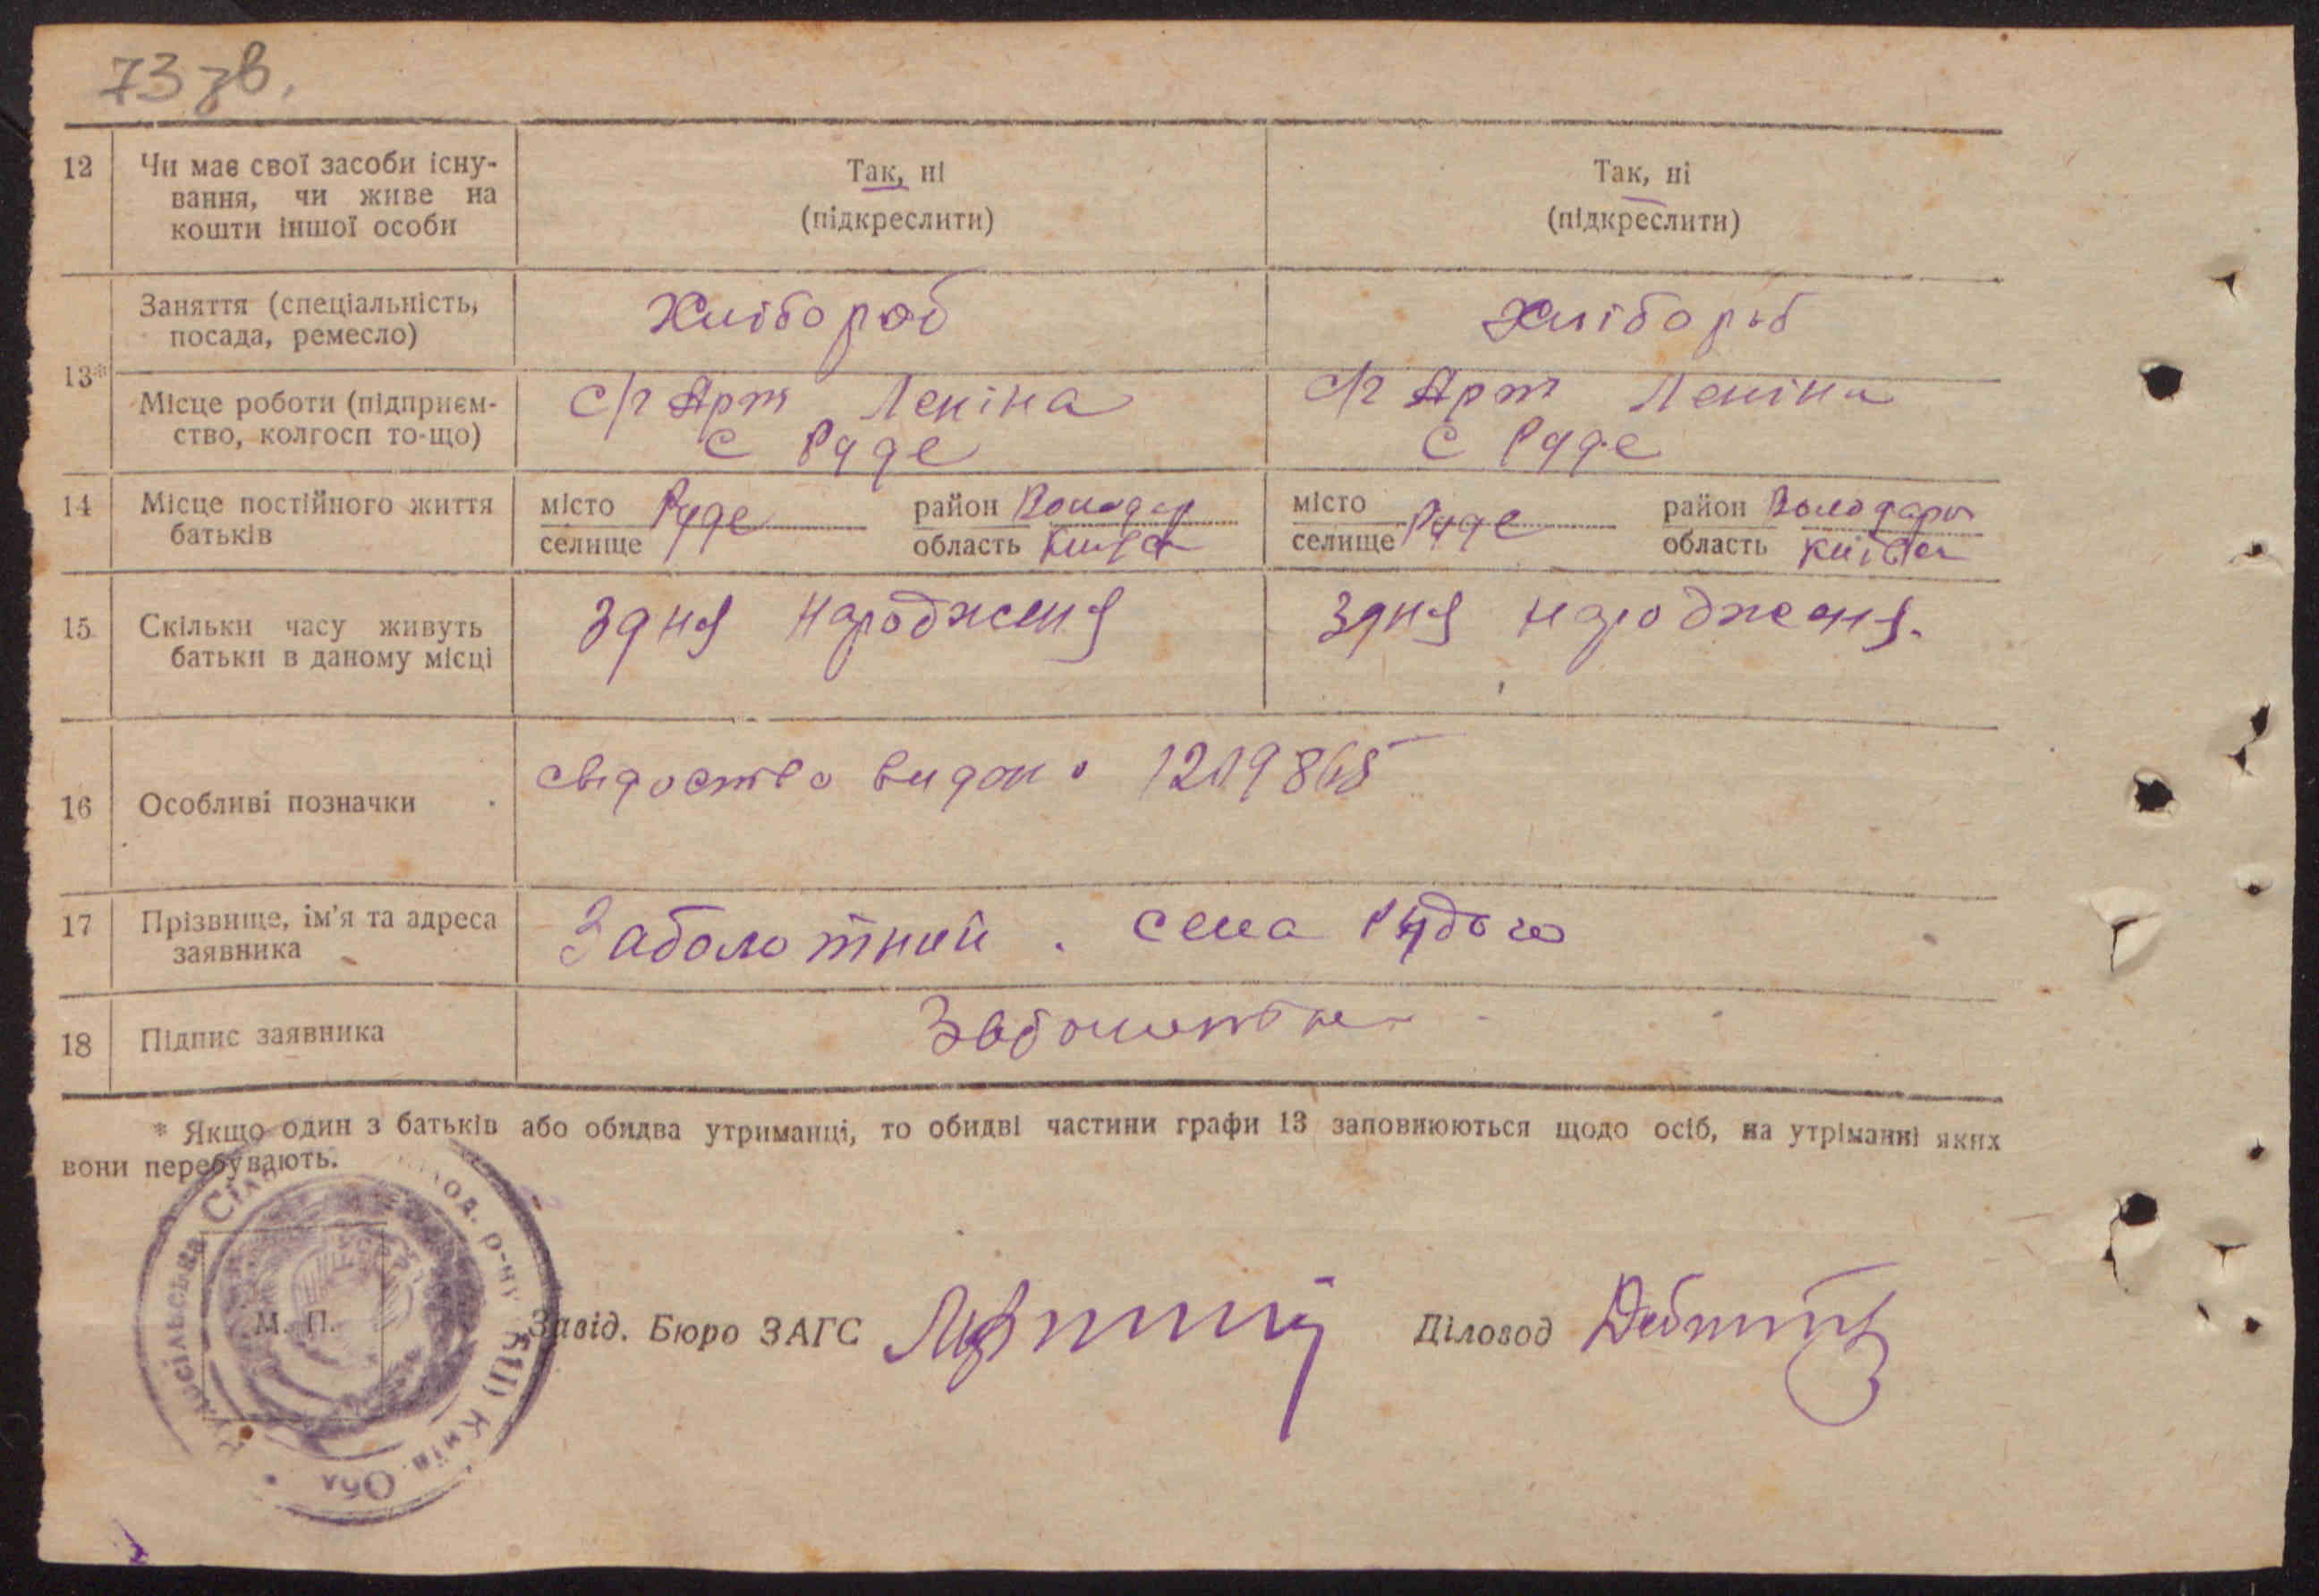 73 зв.
12 Чи має свої засоби існу- Так, ні Так, ні
вання, чи живе на (підкреслити) (підкреслити)
кошти іншої особи
13* Заняття (спеціальність, Хлібороб Хлібороб
посада, ремесло)
Місце роботи (підприєм- с/г Арт Леніна с/г Арт Леніна
ство, колгосп то-що) с Руде с Руде
14 Місце постійного життя місто Руде район Володар місто Руде район Володарсь
батьків селище область Київсь селище область Київсь
15 Скільки часу живуть З дня народженя З дня народженя.
батьки в даному місці
16 Особливі позначки свідоство видано 1219865
17 Прізвище, ім'я та адреса Заболотний . села Рудого
заявника
18 Підпис заявника Заболотн
* Якщо один з батьків або обидва утриманці, то обидві частини графи 13 заповнюються щодо осіб, на утріманні яких
вони перебувають.
М. П.
Завід. Бюро ЗАГС
Діловод
сільська Сіль од. р-ну Київ. Обл